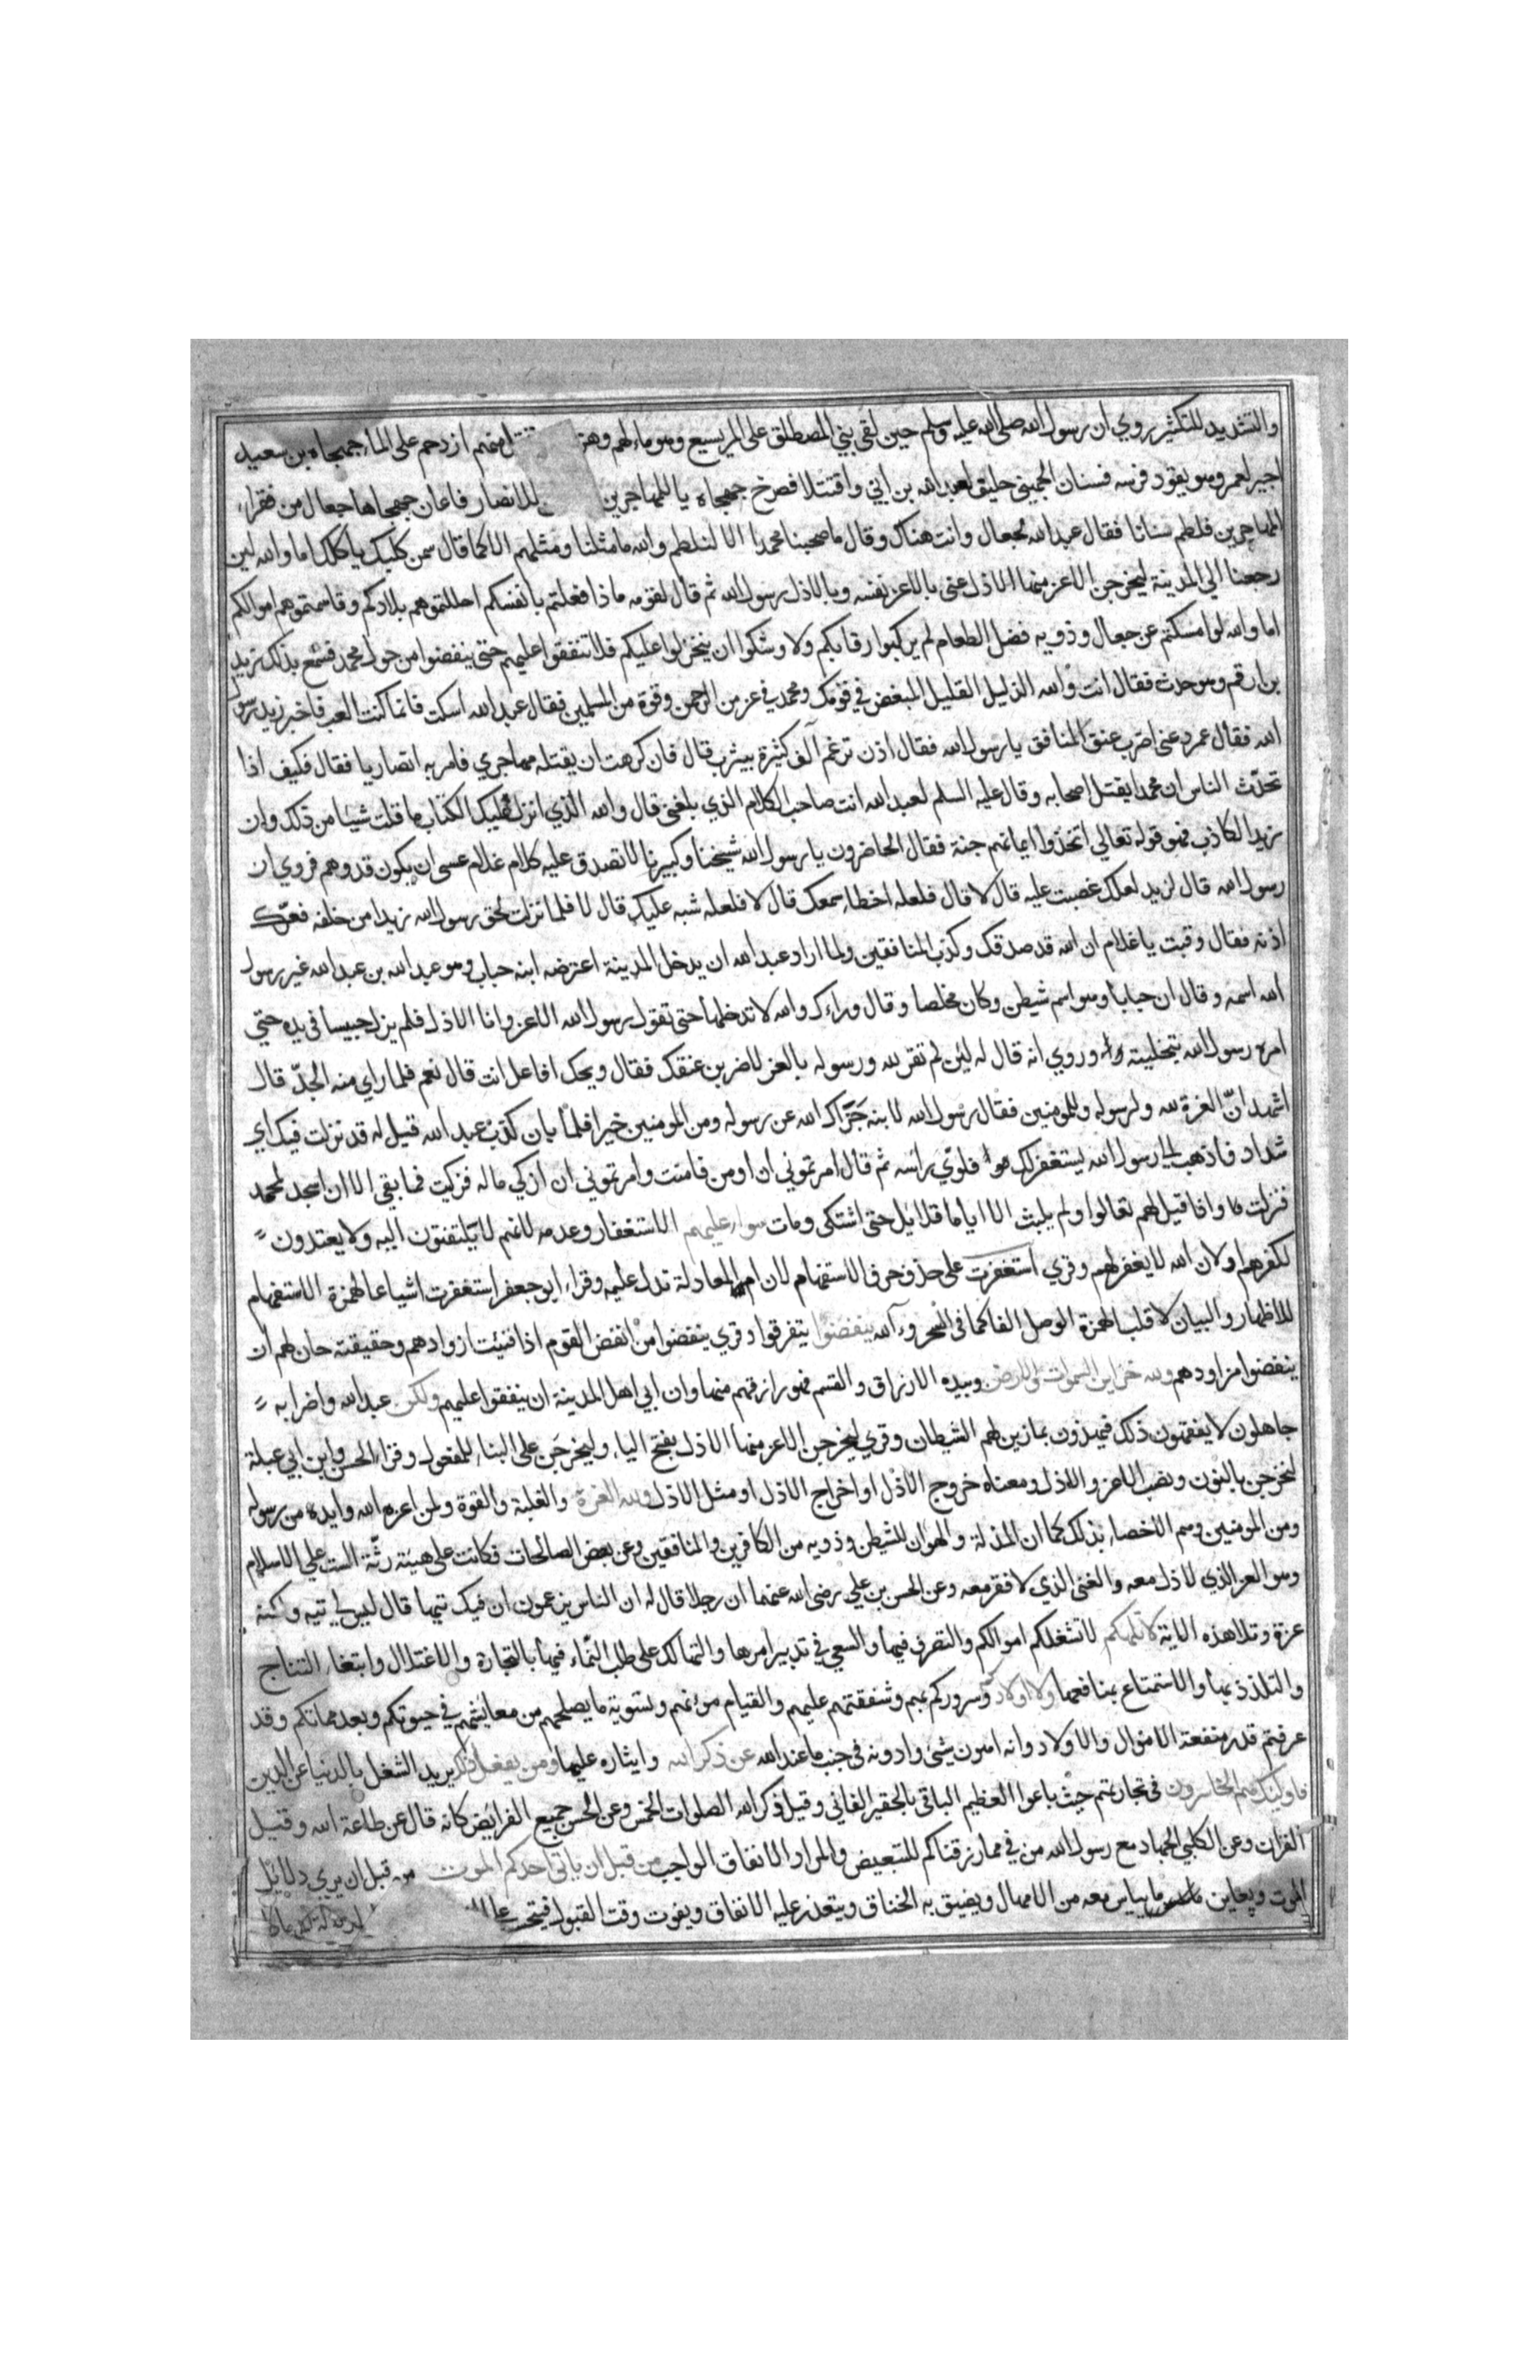 والتشديد للتكثير روي ان رسول الله صلى الله عليه وسلم حين لقى بني المصطلق على المريسيع وهو ماء لهم وهز منهم ازدحم على الماء جهجاه بن سعيد
اجير لعمر وهو يقود فرسه فسنان الجهيني حليف لعبد الله بن ابي واقتتلا فصرخ جهجاه يا للمهاجرين للانصار فاعان جهجاها جعال من فقراء
المهاجرين فلطم سنانا فقال عبد الله لجعال وانت هناك وقال ما صحبنا محمدا الا لنلطم والله ما مثلنا ومثلهم الا كما قال سمن كلبك ياكلك اما والله لين
رجعنا الى المدينة ليخرجن الاعز منها الاذل عنى بالاعز نفسه وبالاذل رسول الله ثم قال لقومه ماذا فعلتم بانفسكم احللتموهم بلادكم وقاسمتموهم اموالكم
اما والله لو امسكتم عن جعال وذويه فضل الطعام لم يركبوا رقابكم ولاوشكوا ان ينخزلوا عليكم فلا تنفقوا عليهم حتى ينفضوا من حول محمد فسمع بذلك زيد
بن ارقم وهو حدث فقال انت والله الذليل القليل المبغض في قومك ومحمد في عز من الرحمن وقوة من المسلمين فقال عبد الله اسكت فانما كنت العب فاخبر زيد رسول
الله فقال عمر دعنى اضرب عنق المنافق يا رسول الله فقال اذن ترغم آنف كثيرة بيثرب قال فان كرهت ان يقتله مهاجري فامر به انصاريا فقال فكيف اذا
تحدث الناس ان محمدا يقتل اصحابه وقال عليه السلم لعبد الله انت صاحب الكلام الذي بلغنى قال والله الذي انزل عليك الكتاب ما قلت شيئا من ذلك وان
زيدا لكاذب فهو قوله تعالى اتخذوا ايمانهم جنة فقال الحاضرون يا رسول الله شيخنا وكبيرنا لا تصدق عليه كلام غلام عسى ان يكون قد وهم فروي ان
رسول الله قال لزيد لعلك غضبت عليه قال لا قال فلعله اخطا سمعك قال لا فلعله شبه عليك قال لا فلما نزلت لحق رسول الله زيدا من خلفه فعرك
اذنه فقال وقت يا غلام ان الله قد صدقك وكذب المنافقين ولما اراد عبد الله ان يدخل المدينة اعترضه ابنه حباب وهو عبد الله بن عبد الله غير رسول
الله اسمه وقال ان حبابا وهو اسم شيطن وكان مخلصا وقال وراءك والله لا تدخلها حتى تقول رسول الله الاعز وانا الاذل فلم يزل حبيسا في يده حتى
امره رسول الله بتخليته وروي انه قال له لئن لم تقر لله ورسوله بالعز لاضربن عنقك فقال ويحك افاعل انت قال نعم فلما راي منه الجد قال
اشهد ان العزة لله ولرسوله وللمومنين فقال رسول الله لابنه جزاك الله عن رسوله ومن المومنين خيرا فلما بان كذب عبد الله قيل له قد نزلت فيك اي
شداد فاذهب الى رسول الله يستغفر لك فلوى راسه ثم قال امرتموني ان اومن فامنت وامرتموني ان ازكي ماله فزكيت فما بقي الا ان اسجد لمحمد
فنزلت واذا قيل لهم تعالوا ولم يلبث الا اياما قلايل حتى اشتكى ومات سواء عليهم الاستغفار وعدمه لانهم لا يلتفتون اليه ولا يعتدون
لكفرهم او لان الله لا يغفر لهم وقري استغفرت على حذف حرف الاستفهام لان ام المعادلة تدل عليه وقراء ابو جعفر استغفرت اشباعا لهمزة الاستفهام
للاظهار والبيان لا قلب لهمزة الوصل الفا كما في السحر وءآلله ينفضوا يتفرقوا وقري ينفضوا من انفض القوم اذا فنيت ازوادهم وحقيقته حان لهم ان
ينفضوا مزاودهم ولله خزاين السموات والارض وبيده الارزاق والقسم فهو رازقهم منها وان ابى اهل المدينة ان ينفقوا عليهم ولكن عبد الله واضرابه
جاهلون لا يفقهون ذلك فيهذون بما زين لهم الشيطان وقري ليخرجن الاعز منها الاذل بفتح الياء وليخرجن على البناء للمفعول وقراء الحسن وابن ابي عبلة
لنخرجن بالنون ونصب الاعز والاذل ومعناه خروج الاذل او اخراج الاذل او مثل الاذل ولله العزة والغلبة والقوة ولمن اعزه الله وايده من رسوله
ومن المومنين وهم الاخصاء بذلك كما ان المذلة والهوان للشيطن وذويه من الكافرين والمنافقين وعن بعض الصالحات فكانت على هيئة رثة الست على الاسلام
وهو العز الذي لا ذل معه والغنى الذي لا فقر معه وعن الحسن بن علي رضى الله عنهما ان رجلا قال له ان الناس يزعمون ان فيك تيها قال ليس لي تيه ولكنه
عزة وتلا هذه الاية لا تلهكم لا تشغلكم اموالكم والتصرف فيها والسعي في تدبير امرها والتهالك على طلب النماء فيها بالتجارة والاغتلال وابتغاء النتاج
والتلذذ بها والاستمتاع بمنافعها ولا اولادكم وسروركم بهم وشفقتهم عليهم والقيام مؤنهم وتسوية ما يصلحهم من معايشهم في حيوتكم وبعد مماتكم وقد
عرفتم قدر منفعة الاموال والاولاد وانه اهون شئ وادونه في جنب ما عند الله عن ذكر الله وايثاره عليها ومن يفعل ذلك يريد الشغل بالدنيا عن الدين
فاولئك هم الخاسرون في تجارتهم حيث باعوا العظيم الباقي بالحقير الفاني وقيل ذكر الله الصلوات الخمس وعن الحسن جميع الفرائض كانه قال عن طاعة الله وقيل
القران وعن الكلبي الجهاد مع رسول الله من في مما رزقناكم للتبعيض والمراد الانفاق الواجب من قبل ان ياتي احدكم الموت من قبل ان يري دلائل
الموت ويعاين ما يياس معه من الامهال ويضيق به الخناق ويتعذر عليه الانفاق ويفوت وقت القبول فيتحسر